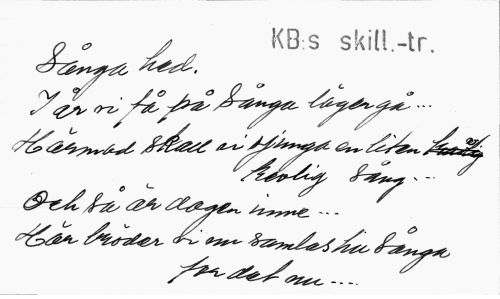 KB:s skill.-tr.
Sånga hed.
I år vi få på Sånga läger gå...
Härmed skall vi sjunga en liten
trevlig sång...
Och så är dagen inne...
Här bröder vi nu samlas hu Sånga
för det nu....